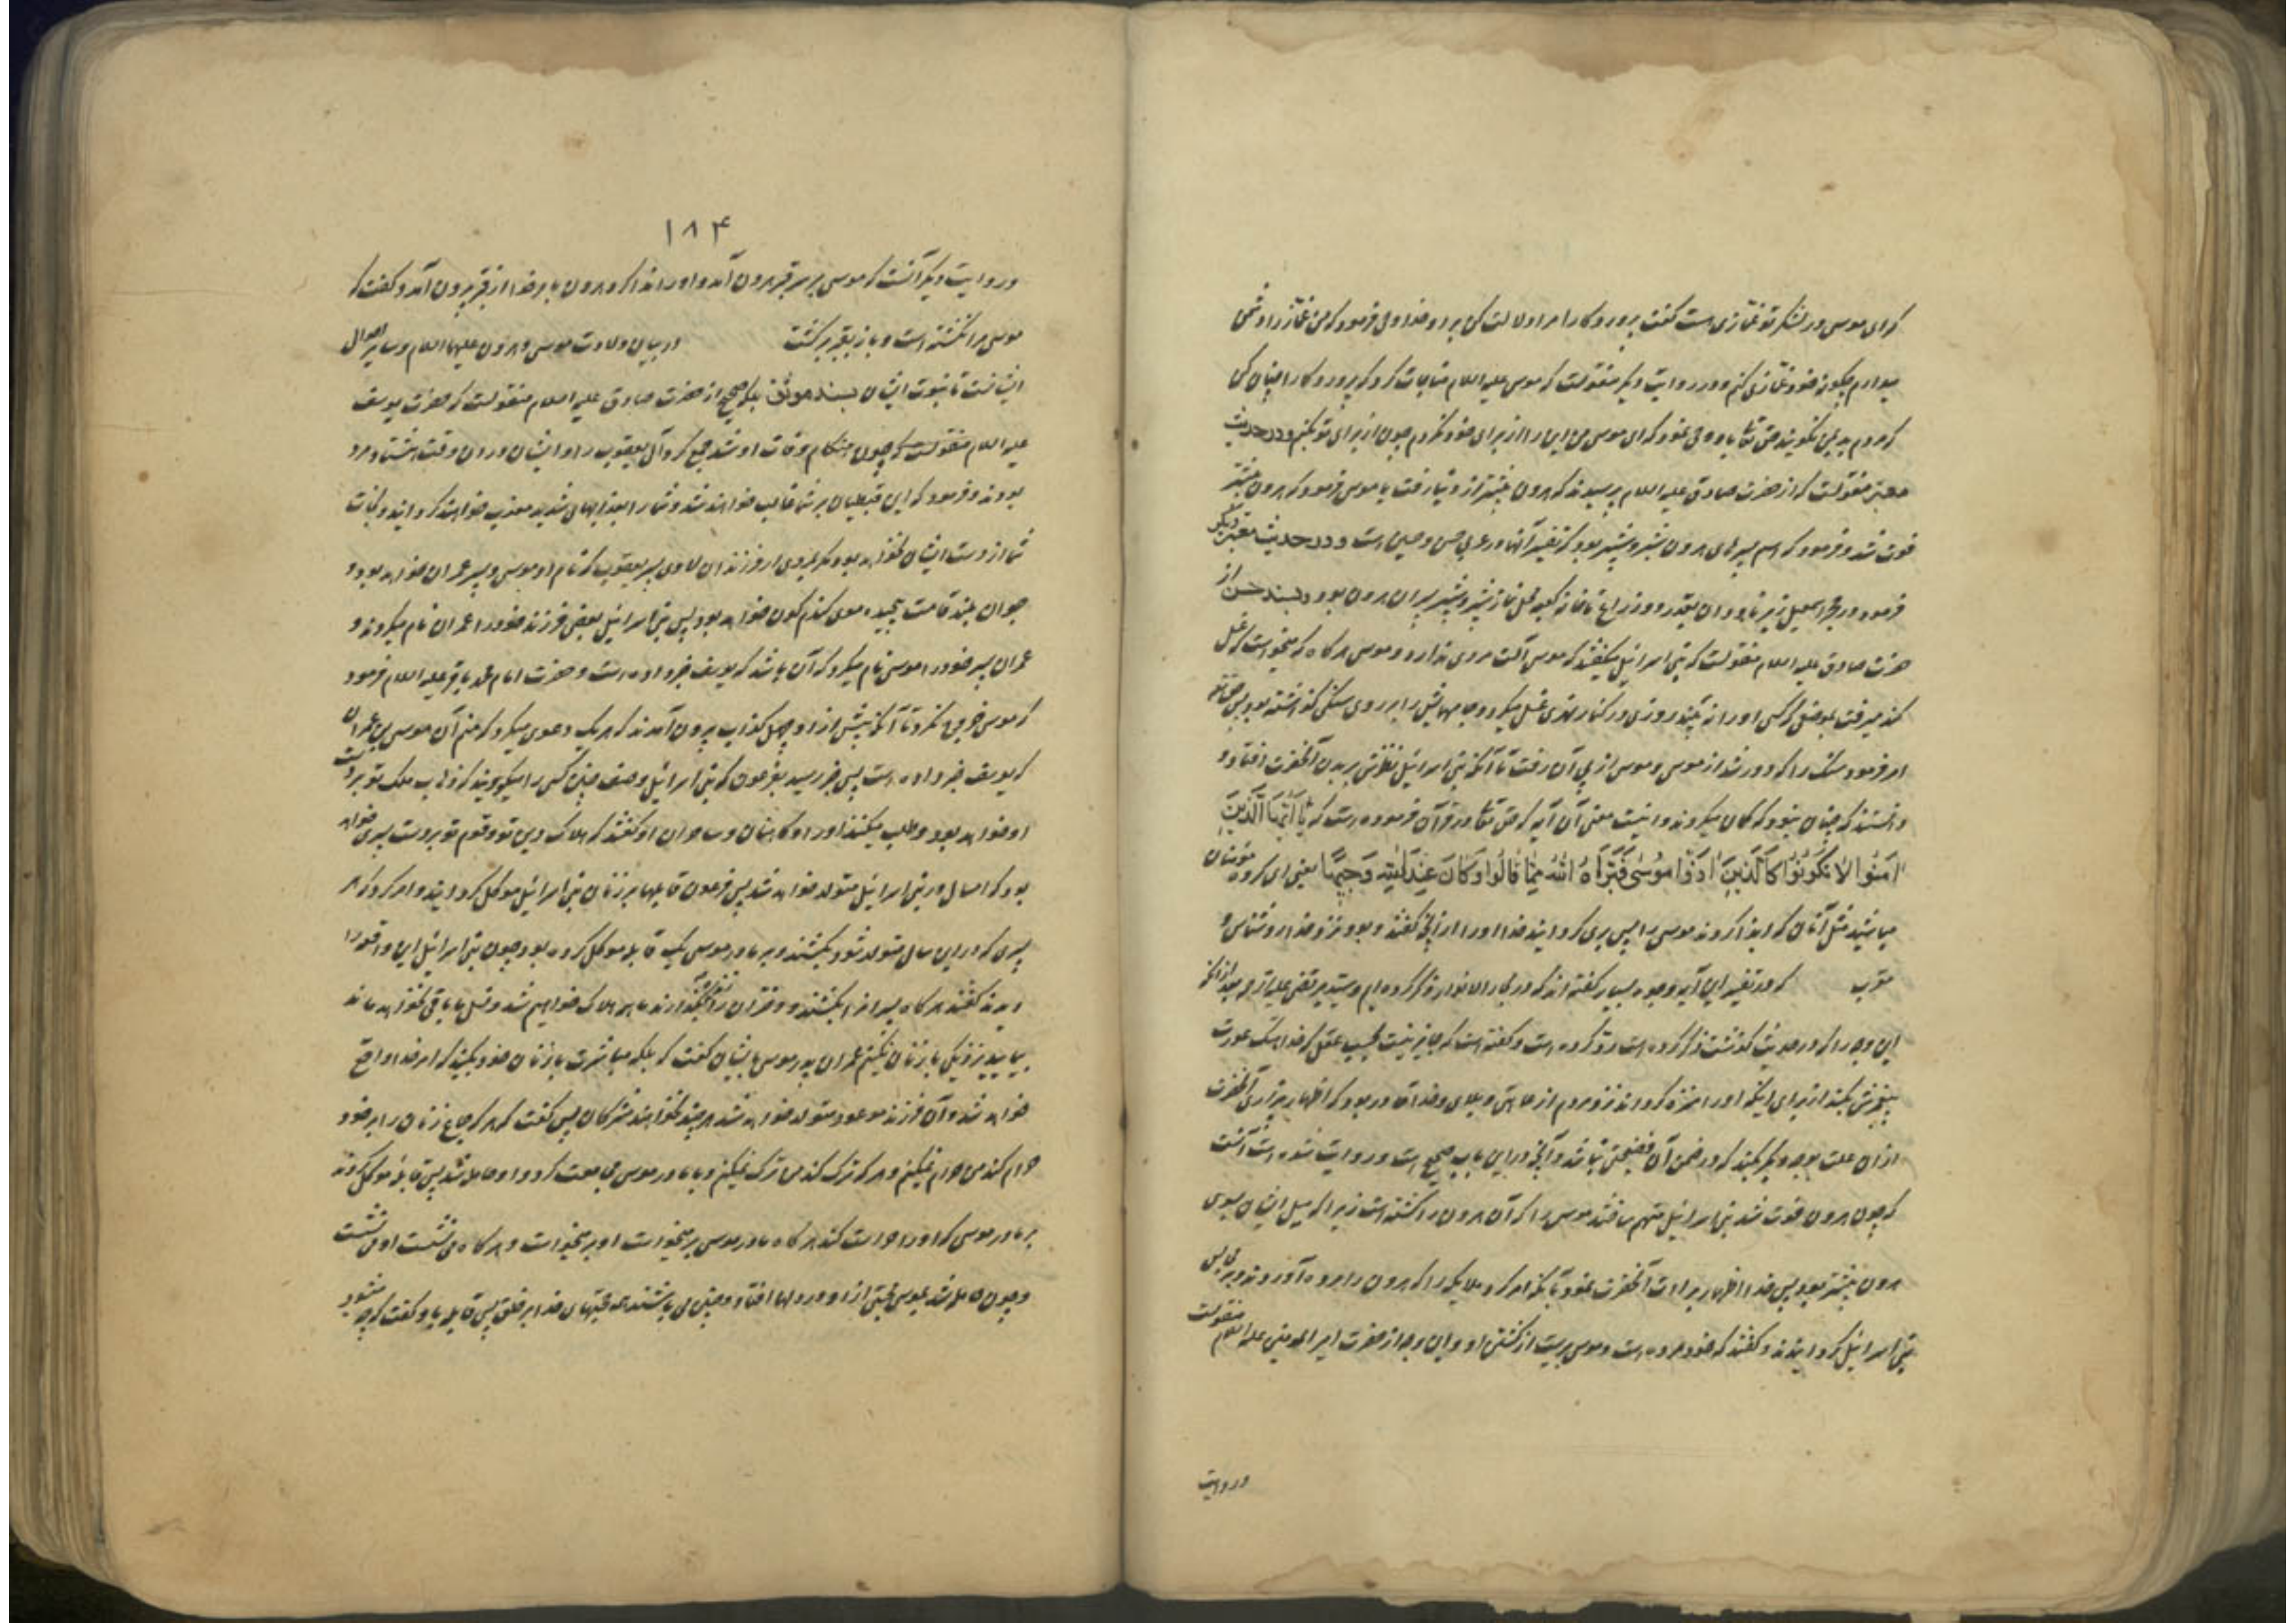 که ای موسی در لشکر تو غمازی هست گفت پروردکارا مرا دلالت کن بر او خدا وحی فرمود که من غماز را دشمن
میدارم چکونه خود غمازی کنم و در روایت دیکر منقولست که موسی علیه السلام مناجات کرد که پروردکارا چنان کن
که مردم بد بمن نکویند حق تعالی باو وحی نمود که ای موسی من این را از برای خود نکردم چون از برای تو بکنم و در حدیث
معتبر منقولست که از حضرت صادق علیه السلام پرسیدند که هرون پیشتر از دنیا رفت یا موسی فرمود که هرون پیشتر
فوت شد و فرمود که اسم پسرهای هرون شبر و شبیر بود که تفسیر آنها در عربی حسن و حسین است و در حدیث معتبر دیکر
فرمود در حجر اسمعیل زیر ناودان بقدر دو ذراع تا خانه کعبه محل نماز شبر و شبیر پسران هرون بود و بسند حسن از
حضرت صادق علیه السلام منقولست که بنی اسرائیل میکفتند که موسی آلت مردی ندارد و موسی هر کاه که میخواست که غسل
کند میرفت بموضعی که کسی او را نه بیند روزی در کنار نهری غسل میکرد و جامهایش را بر روی سنکی کذاشته بود پس حق تعالی
امر فرمود سنک را که دور شد از موسی و موسی از پی آن رفت تا آنکه بنی اسرائیل نظرش بر بدن آنحضرت افتاد و
دانستند که چنان نبود که کمان میکردند و اینست معنی آن آیه که حق تعالی در قرآن فرموده است که یَا أَیُّهَا الَّذِینَ
آمَنُوا لَا تَکُونُوا کَالَّذِینَ آذَوْا مُوسَی فَبَرَّأَهُ اللَّهُ مِمَّا قَالُوا وَکَانَ عِنْدَ اللَّهِ وَجِیهًا یعنی ای کروه مؤمنان
مباشید مثل آنان که ایذا کردند موسی را پس بری کردانید خدا او را از آنچه کفتند و بود نزد خدا روشناس و
مقرب که در تفسیر این آیه وجوه بسیار کفته اند که در بحار الانوار ذکر کرده ام و سید مرتضی علیه الرحمه بعد از آنکه
این وجه را که در حدیث کذشت ذکر کرده است رد کرده است و کفته است که جایز نیست بحسب عقل که خدا هتک عورت
پیغمبرش بکند از برای اینکه او را منزه کرداند نزد مردم از عاهتی و بلای و خدا قادر بود که اظهار بیزاری آنحضرت
از آن علت بوجه دیکر بکند که در ضمن آن فضیحتی نباشد و آنچه در این باب صحیح است و روایت شده است آنست
که چون هرون فوت شد بنی اسرائیل متهم ساختند موسی را که آن هرون را کشته است زیرا که میل ایشان بسوی
هرون بیشتر بود پس خدا اظهار برائت آنحضرت نمود بآنکه امر کرد ملایکه را که هرون را مرده آوردند و بر مجالس
بنی اسرائیل کردانیدند و کفتند که خود مرده است و موسی بریست از کشتن او و این وجه از حضرت امیر المومنین علیه السلام منقولست
و روایت
۱۸۴
و روایت دیکر آنست که موسی بر سر قبر هرون آمد و او را ندا کرد هرون بامر خدا از قبر بیرون آمد و کفت که
موسی مرا نکشته است و باز بقبر برکشت در بیان ولادت موسی و هرون علیهما السلام و سایر احوال
ایشانست تا نبوت ایشان بسند موثق بلکه صحیح از حضرت صادق علیه السلام منقولست که حضرت یوسف
علیه السلام منقولست که چون هنکام وفات او شد جمع کرد آل یعقوب را و ایشان در آن وقت هشتاد مرد
بودند و فرمود که این قبطیان بر شما غالب خواهند شد و شما را بعذابهای شدید معذب خواهند کردانید و نجات
شما از دست ایشان نخواهد بود مکر بمردی از فرزندان لاوی پسر یعقوب که نام او موسی و پسر عمران خواهد بود و
جوان بلند قامت پیچیده موی کندم کون خواهد بود پس بنی اسرائیل بعضی فرزند خود را عمران نام میکردند و
عمران پسر خود را موسی نام میکرد که آن باشد که یوسف خبر داده است و حضرت امام محمد باقر علیه السلام فرمود
که موسی خروج نکرد تا آنکه پیش از او چهل کذاب بیرون آمدند که هر یک دعوی میکرد که منم آن موسی بن عمران
که یوسف خبر داده است پس خبر رسید بفرعون که بنی اسرائیل وصف چنین کسی را میکویند که ذهاب ملک تو بر دست
او خواهد بود و طلب میکنند او را و کاهنان و ساحران او کفتند که هلاک دین تو و قوم تو بر دست پسری خواهد
بود که امسال در بنی اسرائیل متولد خواهد شد پس فرعون قابلها بر زنان بنی اسرائیل موکل کردانید و امر کرد که هر
پسری که در این سال متولد شود بکشند و بر مادر موسی یک قابله موکل کرده بود و چون بنی اسرائیل این واقعه را
دیدند کفتند هر کاه پسرانرا بکشند و دختران را زنده بکذارند ما همه هلاک خواهیم شد و نسل ما باقی نخواهد ماند
بیایید نزدیکی با زنان نکنیم عمران پدر موسی بایشان کفت که بلکه مباشرت با زنان خود بکنید که امر خدا واقع
خواهد شد و آن فرزند موعود متولد خواهد شد هر چند نخواهند مشرکان پس کفت که هر که جماع زنان را بر خود
حرام کند من حرام نمیکنم و هر که ترک کند من ترک نمیکنم و با مادر موسی مجامعت کرد و او حامله شد پس قابله موکل کردند
بر مادر موسی که او را حراست کند هر کاه مادر موسی بر میخواست او بر میخواست و هر کاه می نشست او می نشست
و چون حامله شد بموسی محبتی از او در دلها افتاد و چنین می باشند همه حجتهای خدا بر خلق پس قابله باو کفت که چه میشود